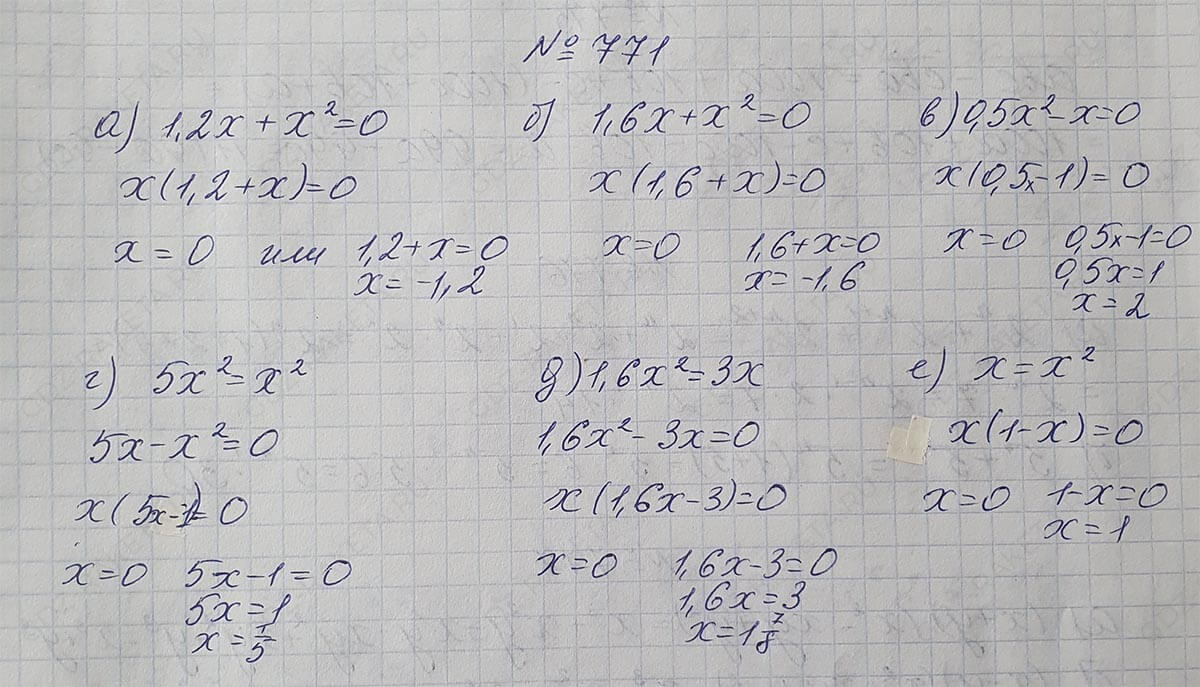 № 771
а) 1,2x + x² = 0
x(1,2 + x) = 0
x = 0 или 1,2 + x = 0
x = -1,2
б) 1,6x + x² = 0
x(1,6 + x) = 0
x = 0 1,6 + x = 0
x = -1,6
в) 0,5x² - x = 0
x(0,5x - 1) = 0
x = 0 0,5x - 1 = 0
0,5x = 1
x = 2
г) 5x² = x²
5x - x² = 0
x(5x - 1) = 0
x = 0 5x - 1 = 0
5x = 1
x = 1/5
д) 1,6x² = 3x
1,6x² - 3x = 0
x(1,6x - 3) = 0
x = 0 1,6x - 3 = 0
1,6x = 3
x = 1 7/8
е) x = x²
x(1 - x) = 0
x = 0 1 - x = 0
x = 1